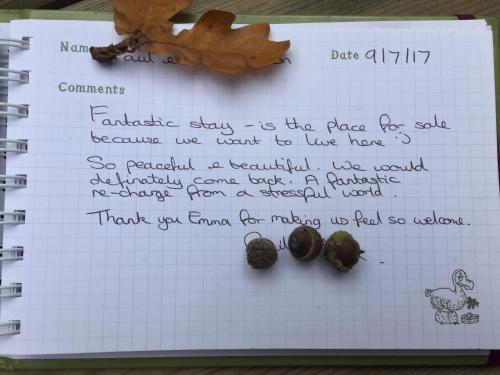 Name Paul &
Date 9/7/17
Comments
Fantastic stay – is the place for sale
because we want to live here :)
So peaceful & beautiful. We would
definately come back. A fantastic
re-charge from a stressful world.
Thank you Emma for making us feel so welcome.